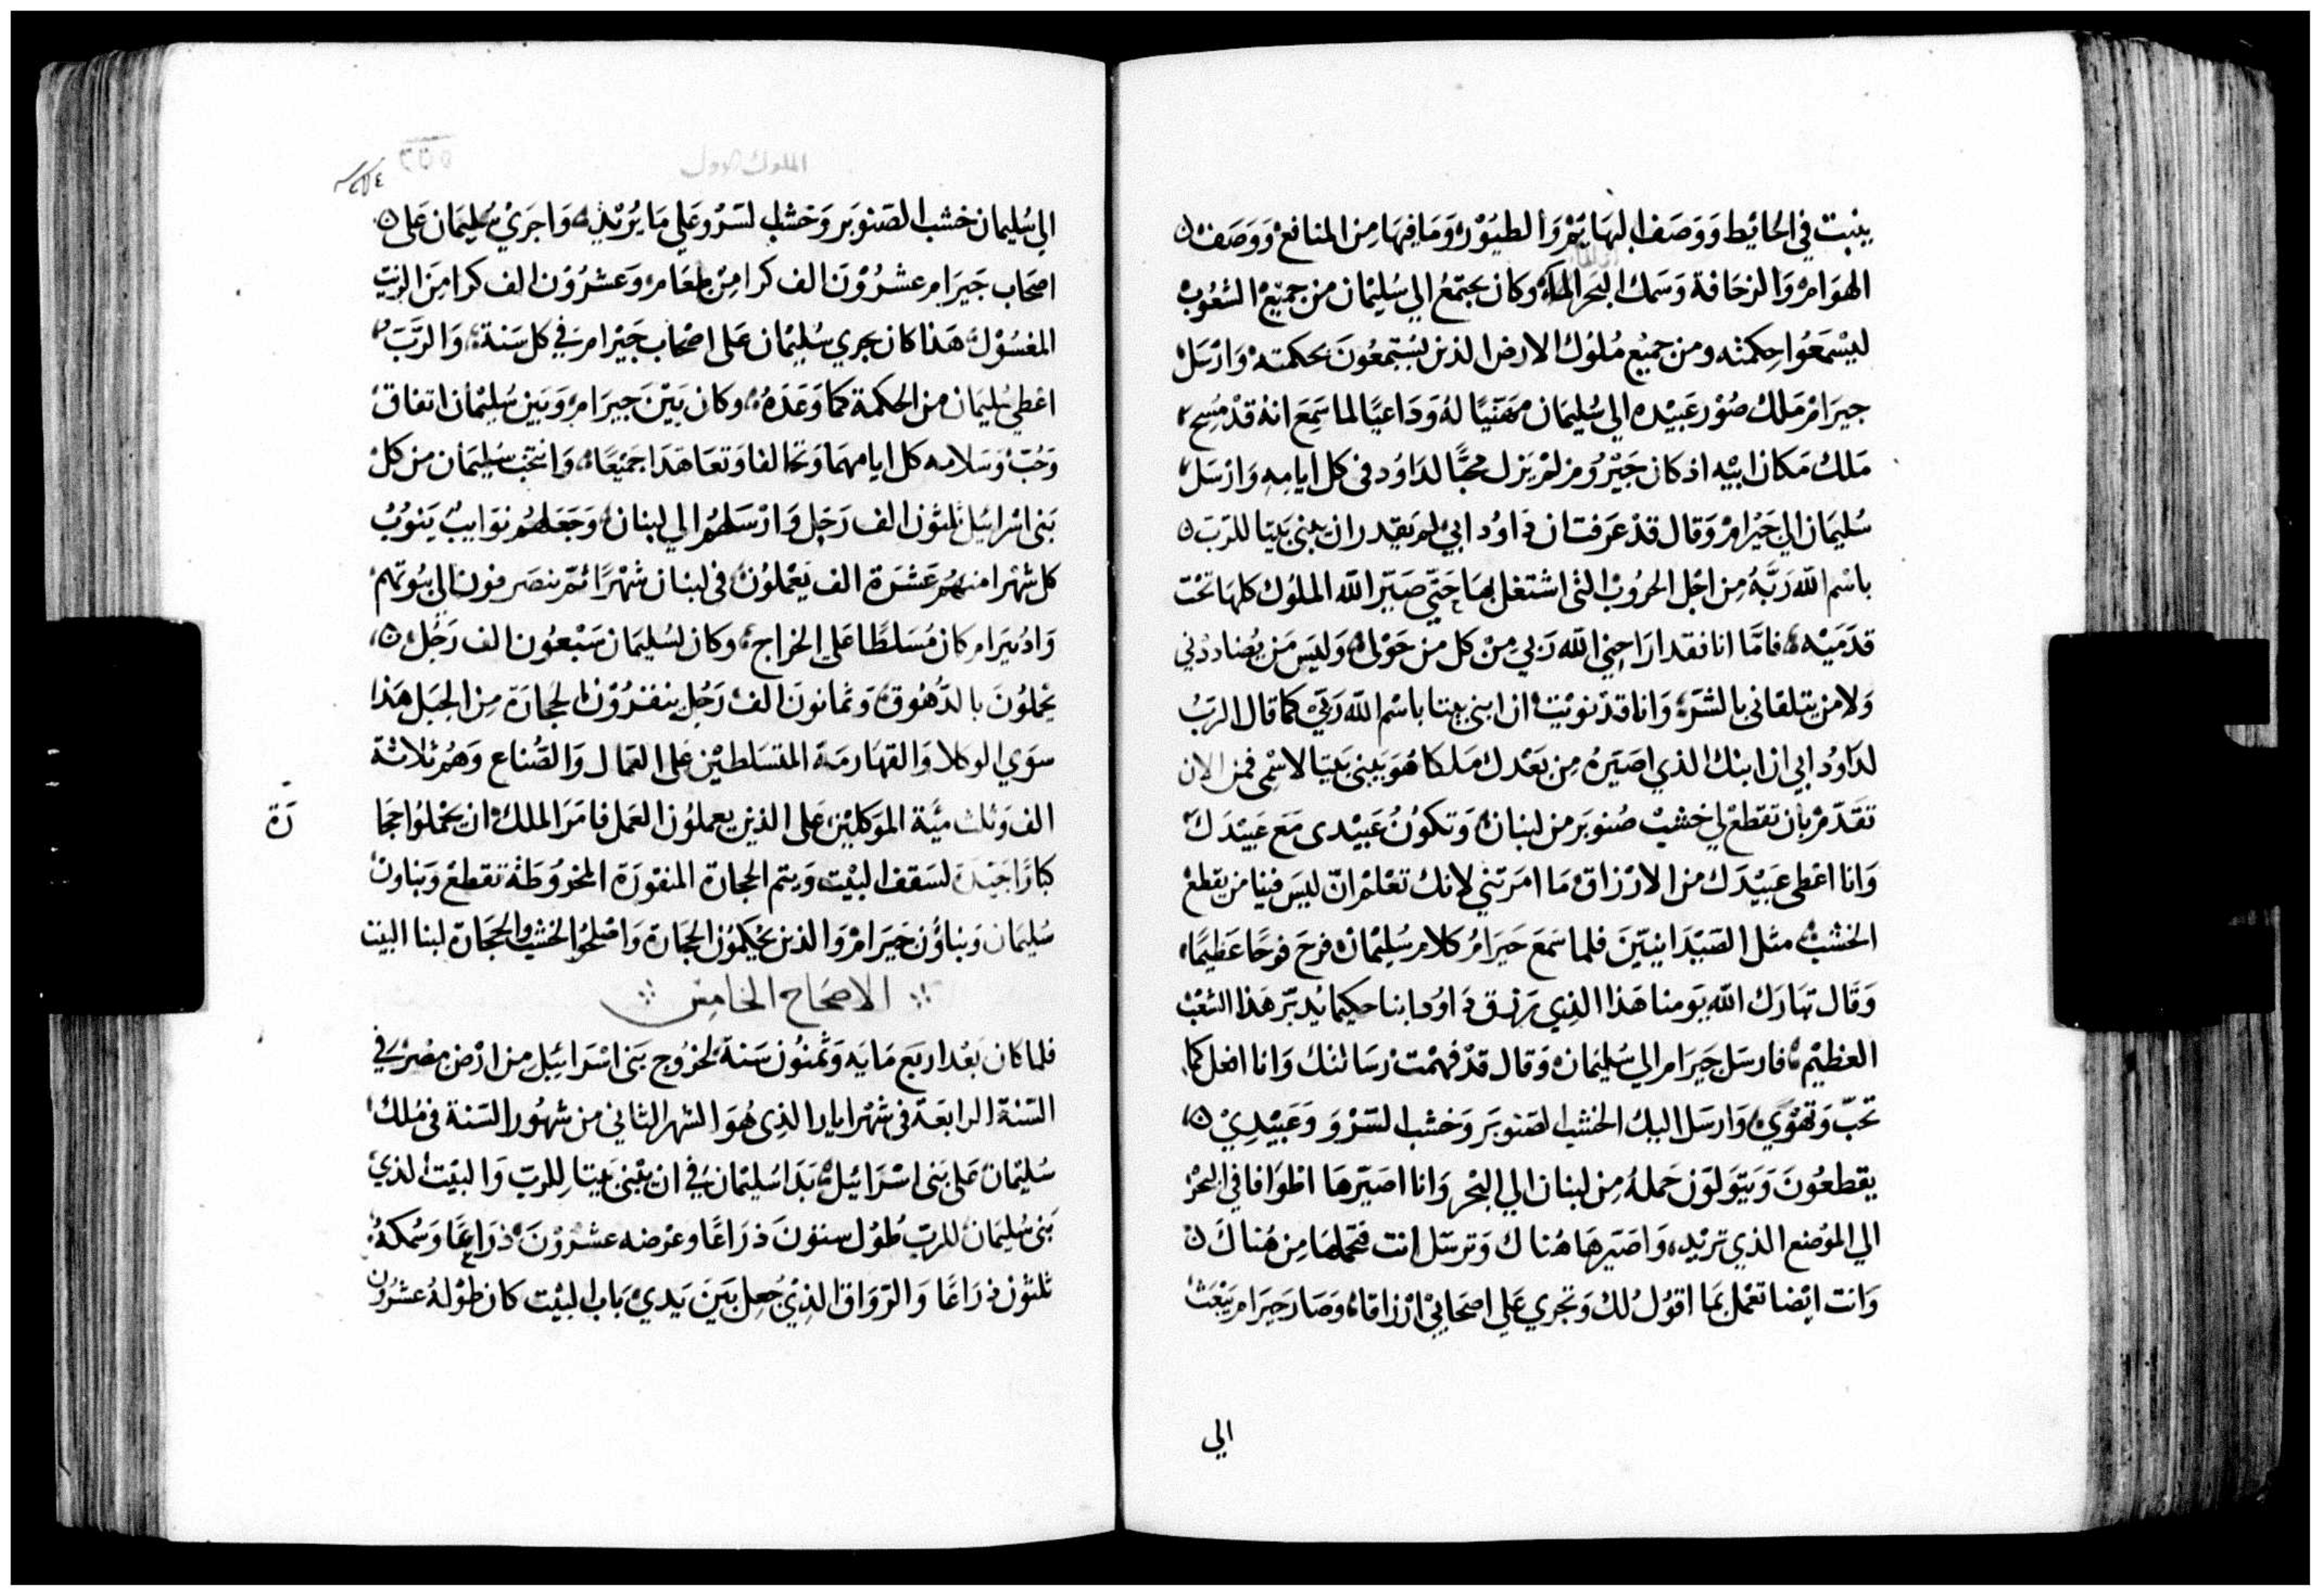 ينبت في الحائيط ووصف البهايم والطيور وما فيها من المنافع ووصف
الهوام والزحافة وسمك البحر الماء وكان يجتمع الي سليمان من جميع الشعوب
ليسمعوا حكمته ومن جميع ملوك الارض الذين يستمعون بحكمته وارسل
حيرام ملك صور عبيده الي سليمان مهنيا له وداعيا لما سمع انه قد مسح
ملك مكان ابيه اذ كان حيروم لم يزل محبا لداود في كل ايامه وارسل
سليمان الي حيرام وقال قد عرفت ان داود ابي لم يقدر ان يبني بيتا للرب
باسم الله ربه من اجل الحروب التي اشتغل بها حتي صير الله الملوك كلها تحت
قدميه فاما انا فقد اراحني الله ربي من كل من حولي وليس من يضاددني
ولا من يتلقاني بالشر وانا قد نويت ان ابني بيتا باسم الله ربي كما قال الرب
لداود ابي ان ابنك الذي اصيره من بعدك ملكا هو يبني بيتا لاسمي فمن الان
تقدم بان تقطع لي خشب صنوبر من لبنان وتكون عبيدي مع عبيدك
وانا اعطي عبيدك من الارزاق ما امرتني لانك تعلم ان ليس فينا من يقطع
الخشب مثل الصيدانيين فلما سمع حيرام كلام سليمان فرح فرحا عظيما
وقال تبارك الله يومنا هذا الذي رزق داود ابنا حكيما يدبر هذا الشعب
العظيم فارسل حيرام الي سليمان وقال قد فهمت رسالتك وانا افعل كما
تحب وتهوي وارسل اليك الخشب الصنوبر وخشب السرو وعبيدي
يقطعون ويتولون حمله من لبنان الي البحر وانا اصيرها اطوافا في البحر
الي الموضع الذي تريد واصيرها هناك وترسل انت فتحملها من هناك
وانت ايضا تعمل بما اقول لك وتجري علي اصحابي ارزاقا وصار حيرام يبعث
الي
الملوك الاول
الي سليمان خشب الصنوبر وخشب السرو علي ما يريد واجري سليمان علي
اصحاب حيرام عشرون الف كرا من طعام وعشرون الف كرا من الزيت
المغسول هذا كان يجري سليمان علي اصحاب حيرام في كل سنة والرب
اعطي سليمان من الحكمة كما وعده وكان بين حيرام وبين سليمان اتفاق
وحب وسلامه كل ايامهما وتحالفا وتعاهدا جميعا وانتخب سليمان من كل
بني اسرائيل ثلثون الف رجل وارسلهم الي لبنان وجعلهم نوايب ينوب
كل شهرا منهم عشرة الف يعملون في لبنان شهرا ثم ينصرفون الي بيوتهم
وادنيرام كان مسلطا علي الخراج وكان لسليمان سبعون الف رجل
يحملون بالدهوق وثمانون الف رجل ينقرون الحجارة من الجبل هذا
سوي الوكلا والقهارمة المتسلطين علي العمال والصناع وهم ثلاثة
الف وثلث مية الموكلين علي الذين يعملون العمل فامر الملك ان يحملوا حجا
رة
كبارا جيدة لسقف البيت ويتم الحجارة المنقورة المخروطة تقطع وبناون
سليمان وبناؤن حيرام والذين يحكمون الحجارة واصلحوا الخشب والحجارة لبنا البيت
الاصحاح الخامس
فلما كان بعد اربع مايه وثمنون سنة لخروج بني اسراييل من ارض مصر في
السنة الرابعة في شهر ايار الذي هو الشهر الثاني من شهور السنة في ملك
سليمان علي بني اسرائيل بدا سليمان في ان يبني بيتا للرب والبيت الذي
بني سليمان للرب طول ستون ذراعا وعرضه عشرون ذراعا وسمكه
ثلثون ذراعا والرواق الذي جعل بين يدي باب البيت كان طوله عشرون